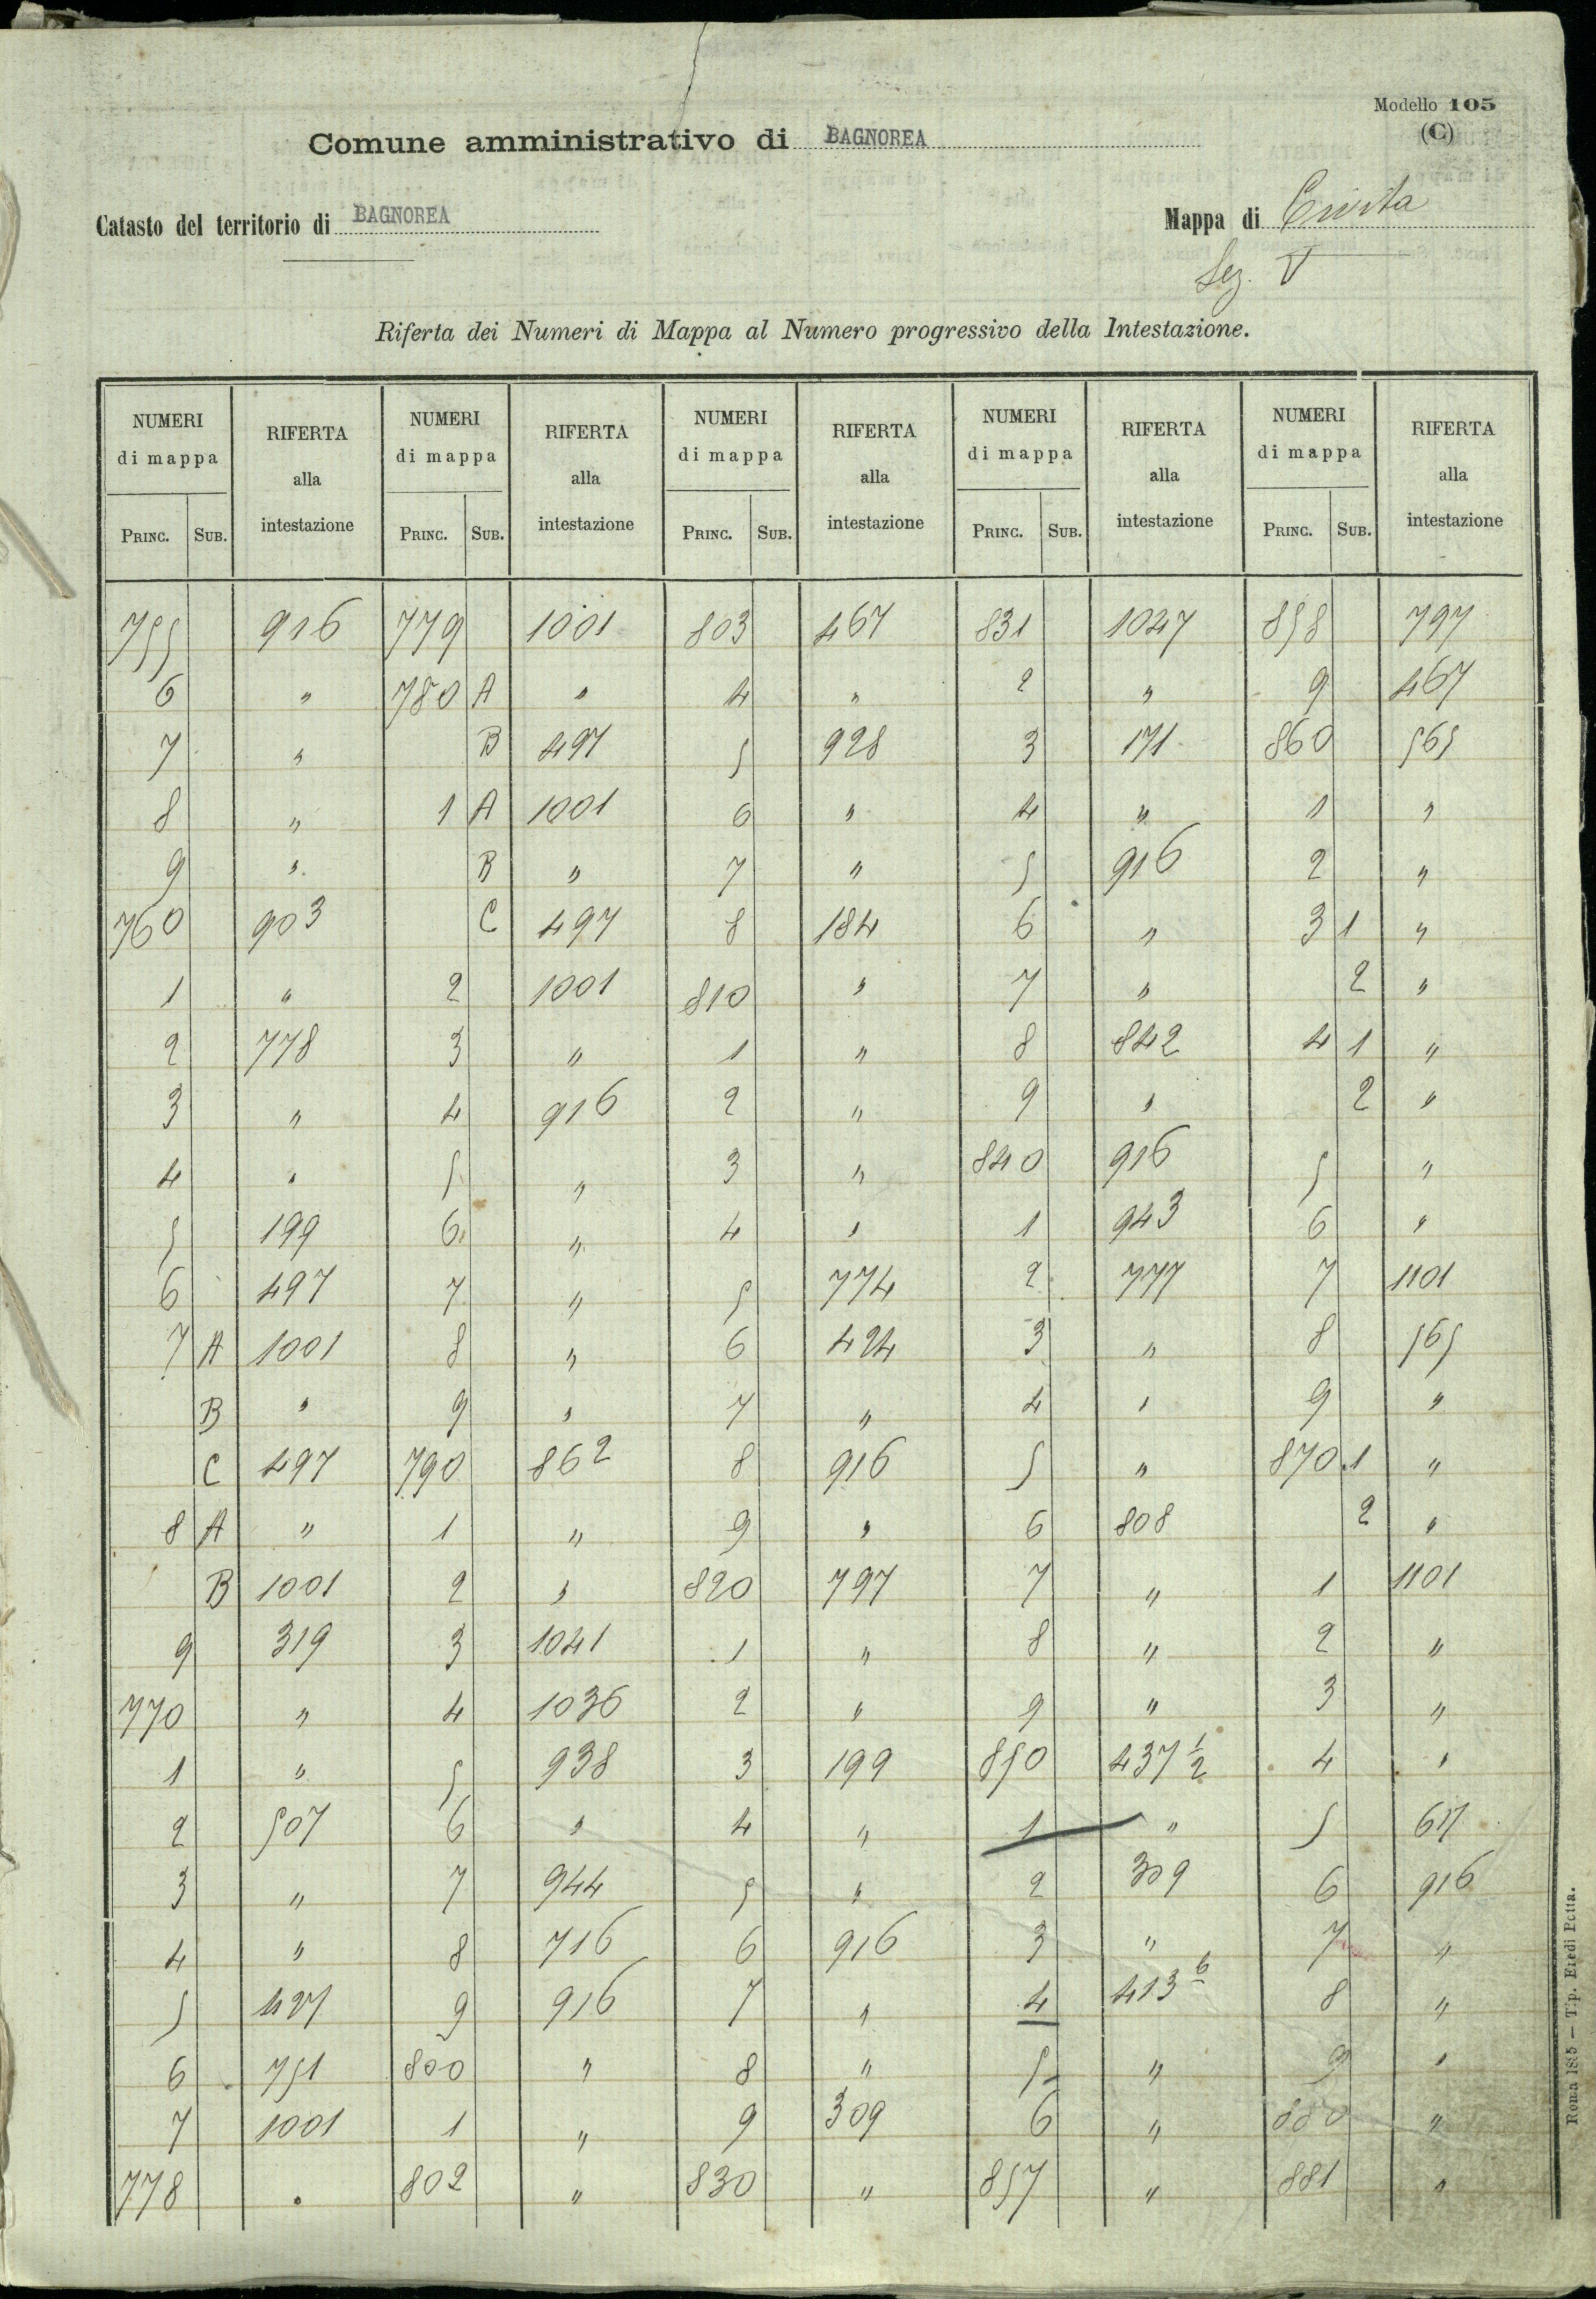 Modello 105
(C)
Comune amministrativo di BAGNOREA
Catasto del territorio di BAGNOREA Mappa di Civita
Sez. V
Riferta dei Numeri di Mappa al Numero progressivo della Intestazione.
NUMERI RIFERTA NUMERI RIFERTA NUMERI RIFERTA NUMERI RIFERTA NUMERI RIFERTA
di mappa alla di mappa alla di mappa alla di mappa alla di mappa alla
PRINC. SUB. intestazione PRINC. SUB. intestazione PRINC. SUB. intestazione PRINC. SUB. intestazione PRINC. SUB. intestazione
755 916 779 1001 803 467 831 1047 858 797
6 " 780 A " 4 " 2 " 9 467
7 " B 497 5 928 3 171 860 565
8 " 1 A 1001 6 " 4 " 1 "
9 " B " 7 " 5 916 2 "
760 903 C 497 8 184 6 " 3 1 "
1 " 2 1001 810 " 7 " 2 "
2 778 3 " 1 " 8 842 4 1 "
3 " 4 916 2 " 9 " 2 "
4 " 5 " 3 " 840 916 5 "
5 199 6 " 4 " 1 943 6 "
6 497 7 " 5 774 2 777 7 1101
7 A 1001 8 " 6 424 3 " 8 565
B " 9 " 7 " 4 " 9 "
C 497 790 862 8 916 5 " 870 1 "
8 A " 1 " 9 " 6 808 2 "
B 1001 2 " 820 797 7 " 1 1101
9 319 3 1041 1 " 8 " 2 "
770 " 4 1036 2 " 9 " 3 "
1 " 5 938 3 199 850 437 1/2 4 "
2 507 6 " 4 " 1 " 5 617
3 " 7 944 5 " 2 309 6 916
4 " 8 716 6 916 3 " 7 "
5 427 9 916 7 " 4 413 6 8 "
6 751 800 " 8 " 5 " 9 "
7 1001 1 " 9 309 6 " 880 "
778 " 802 " 830 " 857 " 881 "
Roma 1885 — Tip. Eredi Botta.